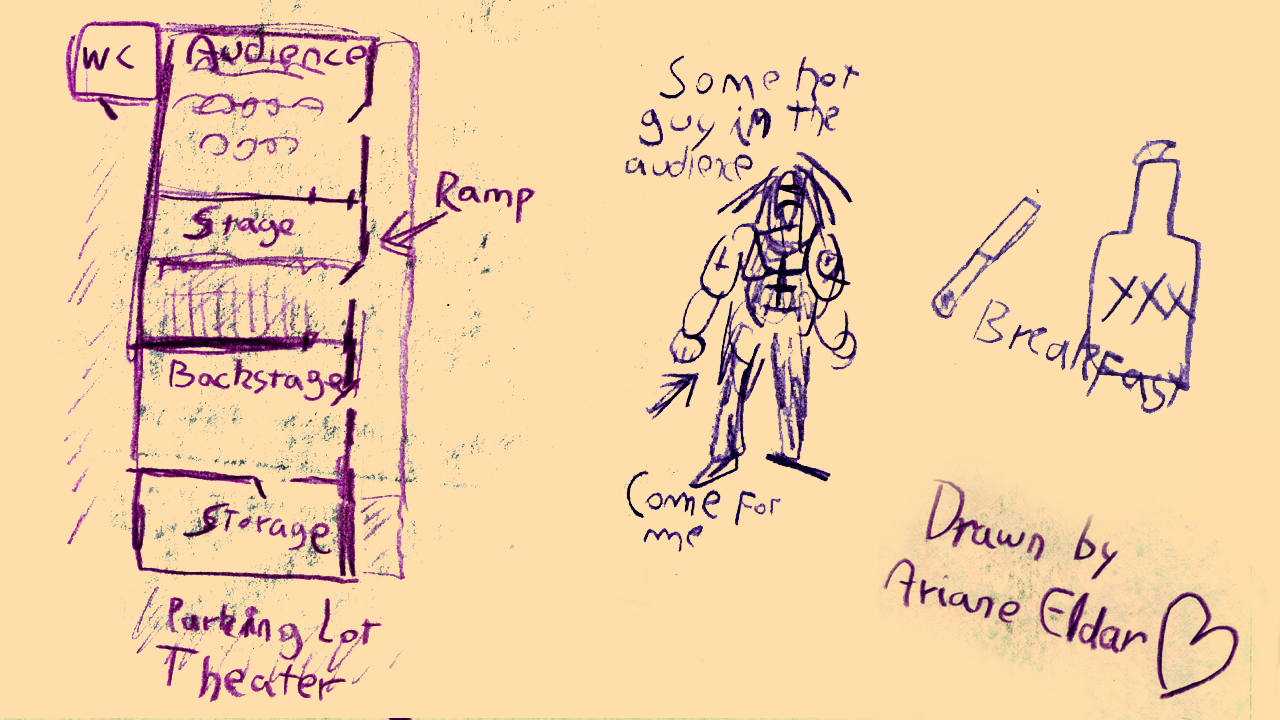 WC
Audience
Stage
Ramp
Backstage
Storage
Parking Lot
Theater
Some hot
guy in the
audiexe
Come For
me
XXX
Breakfast
Drawn by
Ariane Eldar